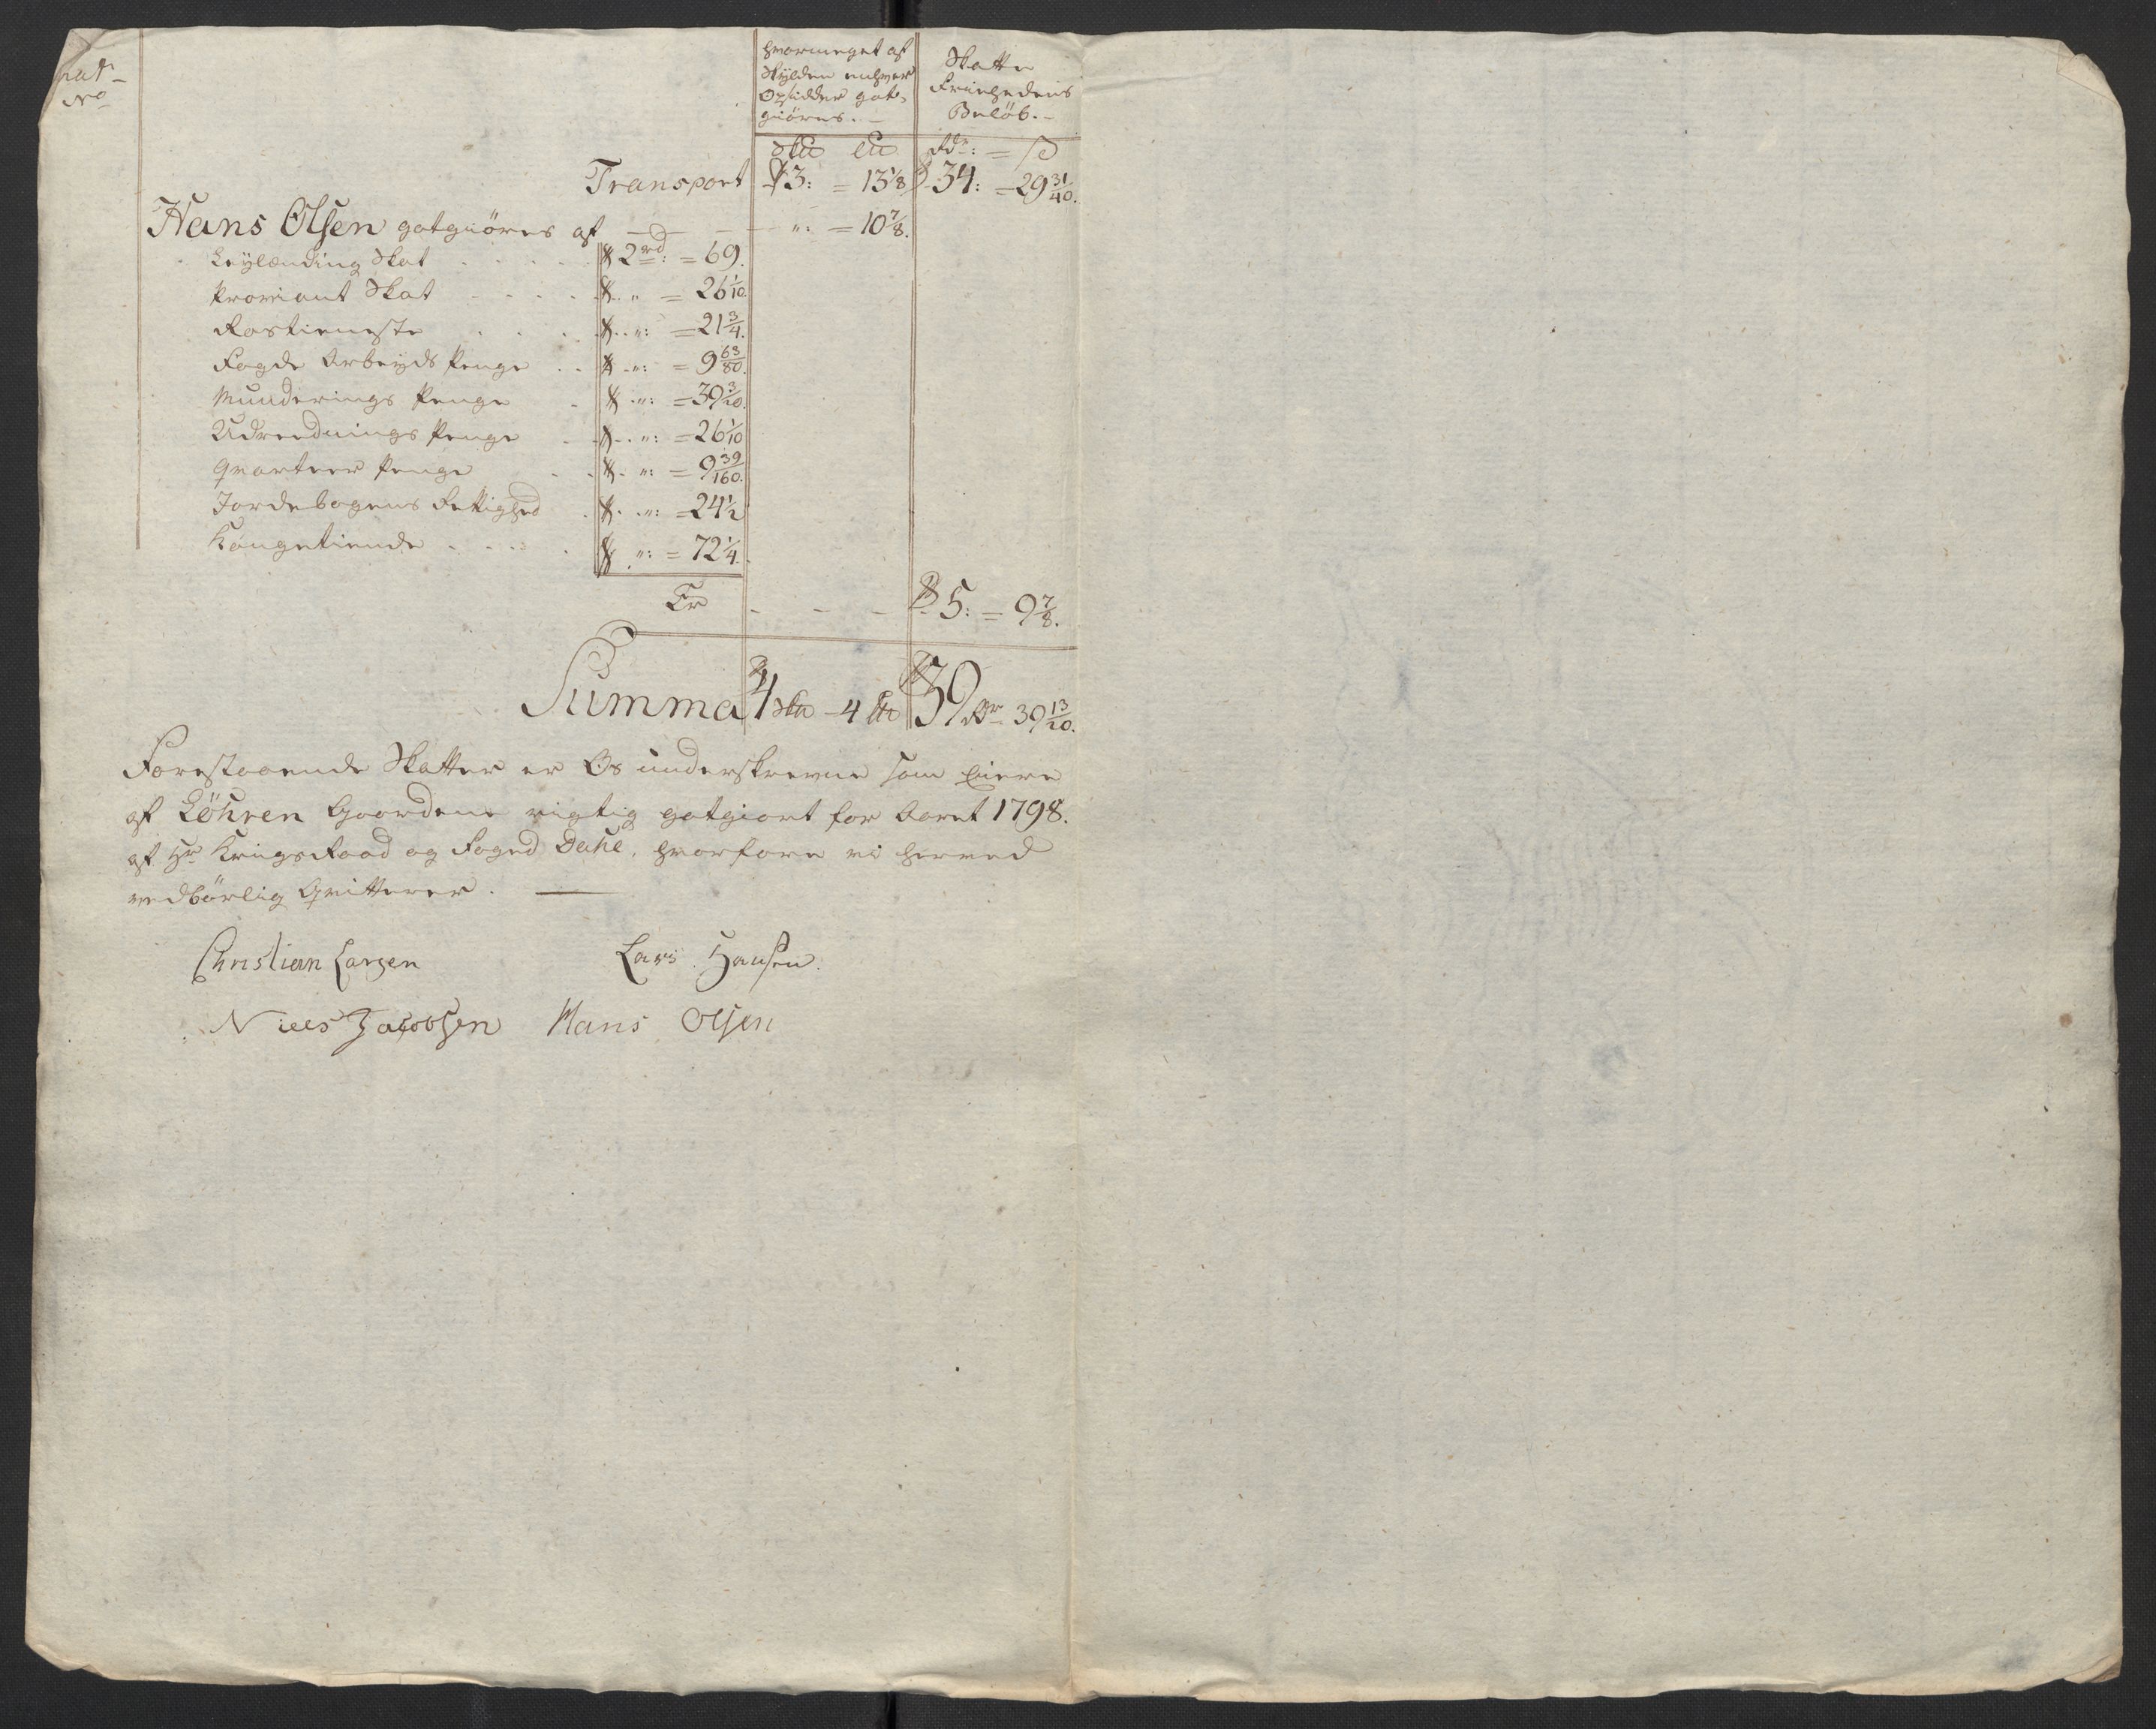 Mat-
No
hvormeget af
Skylden enhver
Opsidder got-
giöres. -
Skatte
Friehedens
Belöb. -
Rdr: = ß
Transport 3: = 13 1/8 34: = 29 31/40.
Hans Olsen gotgiöres af - - - ": = 10 7/8.
Leylænding Skat 2 rd: = 69.
Proviant Skat " = 26 1/10.
Rostieneste ": = 21 3/4.
Fogde Arbeyds Penge ": = 9 63/80.
Munderings Penge ": = 39 3/20.
Udreednings Penge ": = 26 1/10
Qvarteer Penge ": = 9 39/160.
Jordebogens Rettighed ": = 24 1/2
Kongetiende ": = 72 1/4.
Er - - - 5: = 9 7/8.
Summa 4 - 4 39 Rdr 39 13/20.
Forestaaende Skatter er Os underskrevne som Eiere
af Löhren Gaardene rigtig gotgiort for Aaret 1798.
af Hr Krigsraad og Foged Dahl, hvorfore vi herved
vedbörlig Qvitterer. -
Christian Larsen Lars Hansen.
Niels Jacobsen Hans Olsen